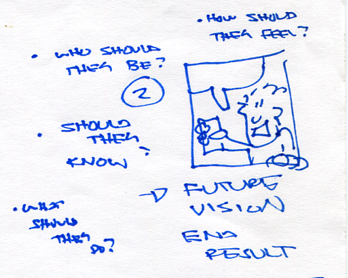 • HOW SHOULD
THEY FEEL?
• WHO SHOULD
THEY BE?
2
• SHOULD
THEY
KNOW?
→ FUTURE
VISION
END
RESULT
• WHAT
SHOULD
THEY
DO?